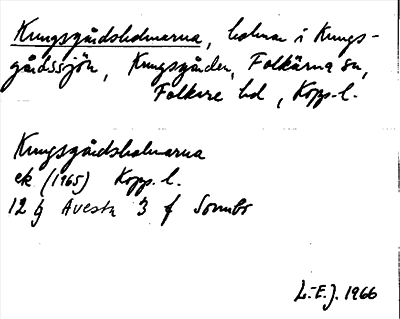 Kungsgårdsholmarna, holmar i Kungs-
gårdssjön, Kungsgården, Folkärna sn,
Folkare hd, Kopp. l.
Kungsgårdsholmarna
ek (1965) Kopp. l.
12 g Avesta 3 f Sonnbo
L.-E.J. 1966